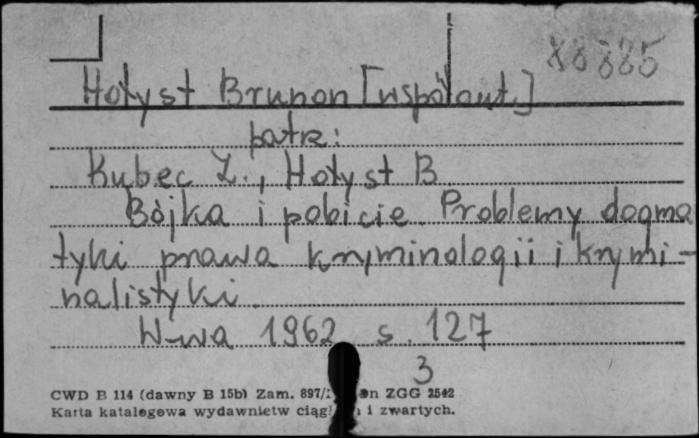 88885
Hołyst Brunon [współaut.]
patrz:
Kubec Z., Hołyst B
Bójka i pobicie. Problemy dogma
tyki prawa kryminologii i krymi-
nalistyki.
W-wa 1962 s. 127
3
CWD B 114 (dawny B 15b) Zam. 897/ ZGG 2542
Karta katalogowa wydawnictw i zwartych.